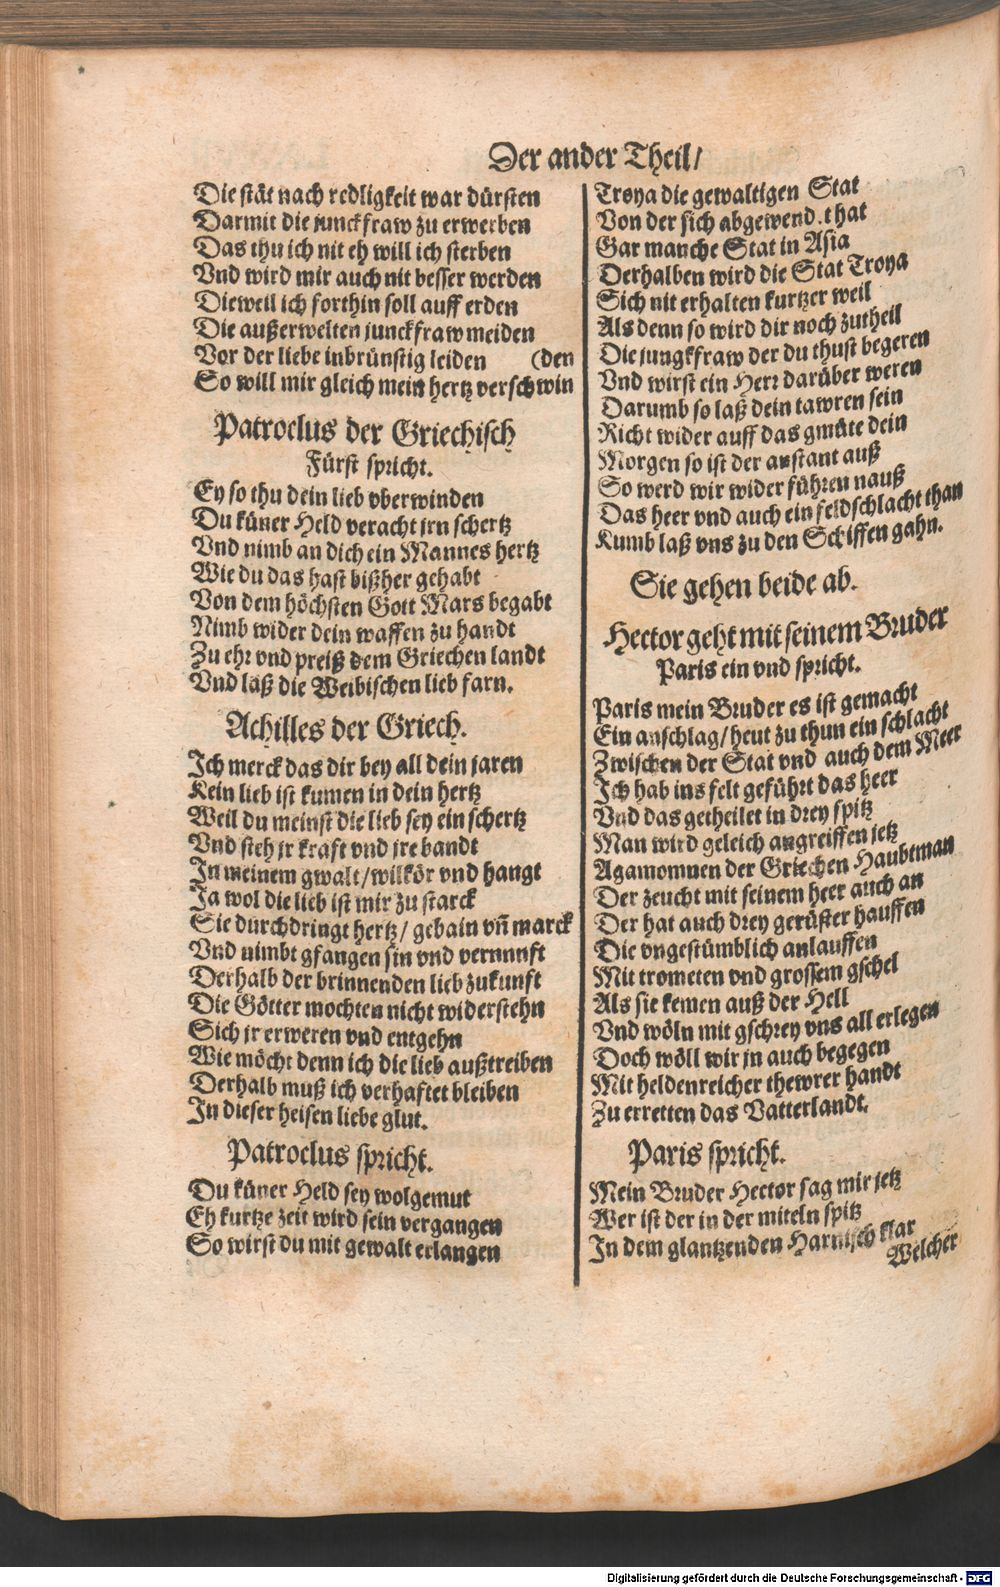 Der ander Theil/
Die stät nach redligkeit war dürsten
Darmit die junckfraw zu erwerben
Das thu ich nit eh will ich sterben
Vnd wird mir auch nit besser werden
Dieweil ich forthin soll auff erden
Die außerwelten junckfraw meiden
Vor der liebe inbrünstig leiden (den
So will mir gleich mein hertz verschwin
Patroclus der Griechisch
Fürst spricht.
Ey so thu dein lieb vberwinden
Du küner Held veracht jrn schertz
Vnd nimb an dich ein Mannes hertz
Wie du das hast bißher gehabt
Von dem höchsten Gott Mars begabt
Nimb wider dein waffen zu handt
Zu ehr vnd preiß dem Griechen landt
Vnd laß die Weibischen lieb farn.
Achilles der Griech.
Ich merck das dir bey all dein jaren
Kein lieb ist kumen in dein hertz
Weil du meinst die lieb sey ein schertz
Vnd steh jr kraft vnd jre bandt
In meinem gwalt/ wilkör vnd hangt
Ja wol die lieb ist mir zu starck
Sie durchdringt hertz/ gebain vñ marck
Vnd nimbt gfangen sin vnd vernunft
Derhalb der brinnenden lieb zukunft
Die Götter mochten nicht widerstehn
Sich jr erweren vnd entgehn
Wie möcht denn ich die lieb außtreiben
Derhalb muß ich verhaftet bleiben
In dieser heisen liebe glut.
Patroclus spricht.
Du küner Held sey wolgemut
Eh kurtze zeit wird sein vergangen
So wirst du mit gewalt erlangen
Troya die gewaltigen Stat
Von der sich abgewend.t hat
Gar manche Stat in Asia
Derhalben wird die Stat Troya
Sich nit erhalten kurtzer weil
Als denn so wird dir noch zutheil
Die jungkfraw der du thust begeren
Vnd wirst ein Herr darüber weren
Darumb so laß dein tawren sein
Richt wider auff das gmüte dein
Morgen so ist der anstant auß
So werd wir wider führen nauß
Das heer vnd auch ein feldschlacht than
Kumb laß vns zu den Schiffen gahn.
Sie gehen beide ab.
Hector geht mit seinem Bruder
Paris ein vnd spricht.
Paris mein Bruder es ist gemacht
Ein anschlag/ heut zu thun ein schlacht
Zwischen der Stat vnd auch dem Meer
Ich hab ins felt geführt das heer
Vnd das getheilet in drey spitz
Man wird geleich angreiffen jetz
Agamomnen der Griechen Haubtman
Der zeucht mit seinem heer auch an
Der hat auch drey gerüster hauffen
Die vngestümblich anlauffen
Mit trometen vnd grossem gschel
Als sie kemen auß der Hell
Vnd wöln mit gschrey vns all erlegen
Doch wöll wir jn auch begegen
Mit heldenreicher thewrer handt
Zu erretten das Vatterlandt.
Paris spricht.
Mein Bruder Hector sag mir jetz
Wer ist der in der miteln spitz
In dem glantzenden Harnisch klar
Welcher
Digitalisierung gefördert durch die Deutsche Forschungsgemeinschaft - DFG